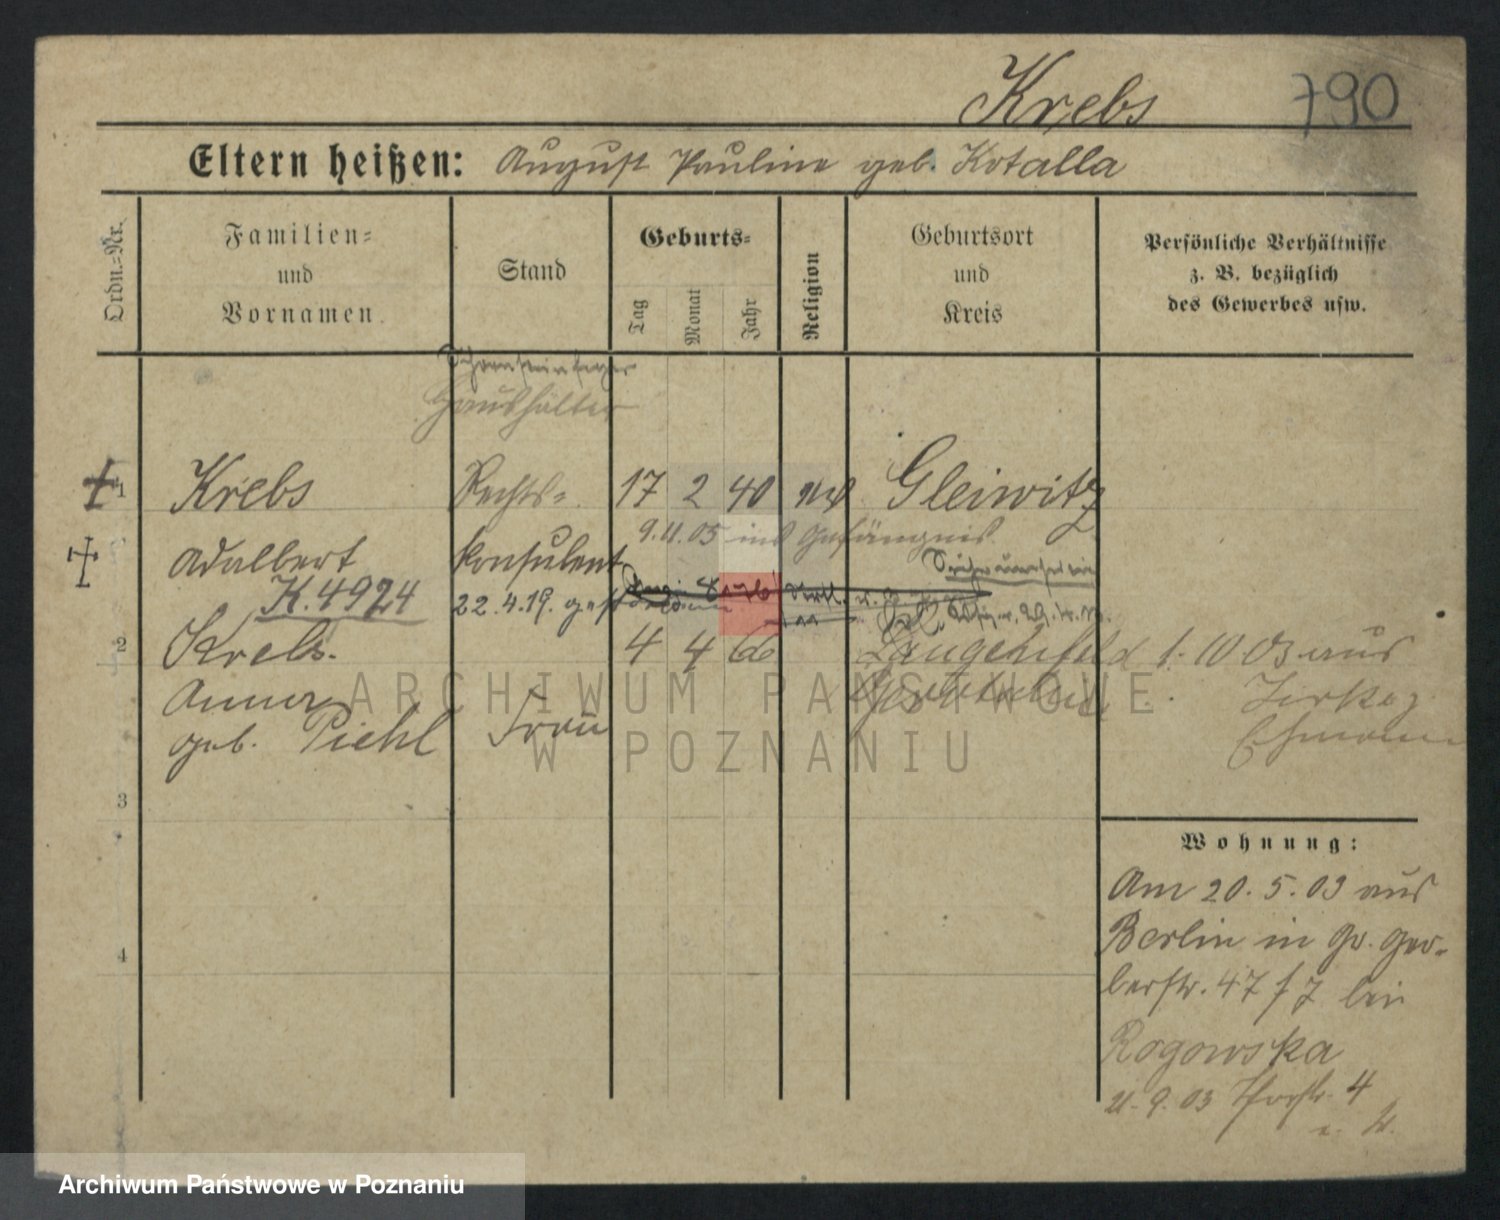 Krebs 790
Eltern heißen: August Pauline geb. Kotalla
Ordn.=Nr.
Familien=
und
Vornamen
Stand
Geburts=
Tag
Monat
Jahr
Religion
Geburtsort
und
Kreis
Persönliche Verhältnisse
z. B. bezüglich
des Gewerbes usw.
Schornsteinfeger
Haushälter
1 Krebs Rechts= 17 2 40 Gleiwitz
9.11.05 ins Gefängnis
Adalbert konsulent
K.4924
22.4.19. gestorben
2 Krebs. 4 4 66 Langenfeld 1.10 03 aus
Anna Zirke
geb. Piehl Frau Ehmann
ARCHIWUM PAŃSTWOWE
W POZNANIU
3
4
Wohnung:
Am 20.5.03 aus
Berlin in Gr. Ger=
berstr. 47 f 7 bei
Rogowska
21.9.03 4
Archiwum Państwowe w Poznaniu